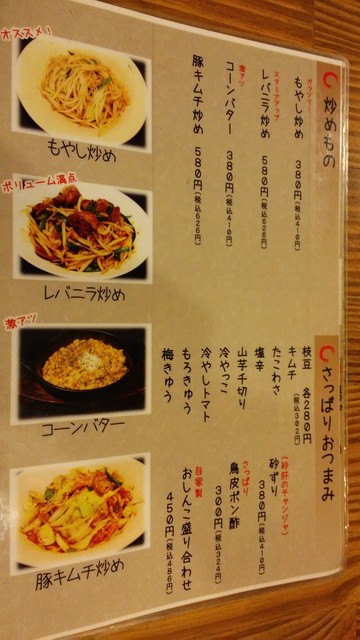 炒めもの
ガァリー！
もやし炒め 380円(税込410円)
スタミナアップ
レバニラ炒め 580円(税込626円)
激アツ
コーンバター 380円(税込410円)
豚キムチ炒め 580円(税込626円)
さっぱりおつまみ
枝豆 各280円
キムチ (税込302円)
たこわさ
塩辛
山芋千切り
冷やっこ
冷やしトマト
もろきゅう
梅きゅう
(砂肝のチャンジャ)
砂ずり 380円(税込410円)
さっぱり
鳥皮ポン酢 300円(税込324円)
自家製
おしんこ盛り合わせ 450円(税込486円)
オススメ！
もやし炒め
ボリューム満点
レバニラ炒め
激アツ
コーンバター
豚キムチ炒め